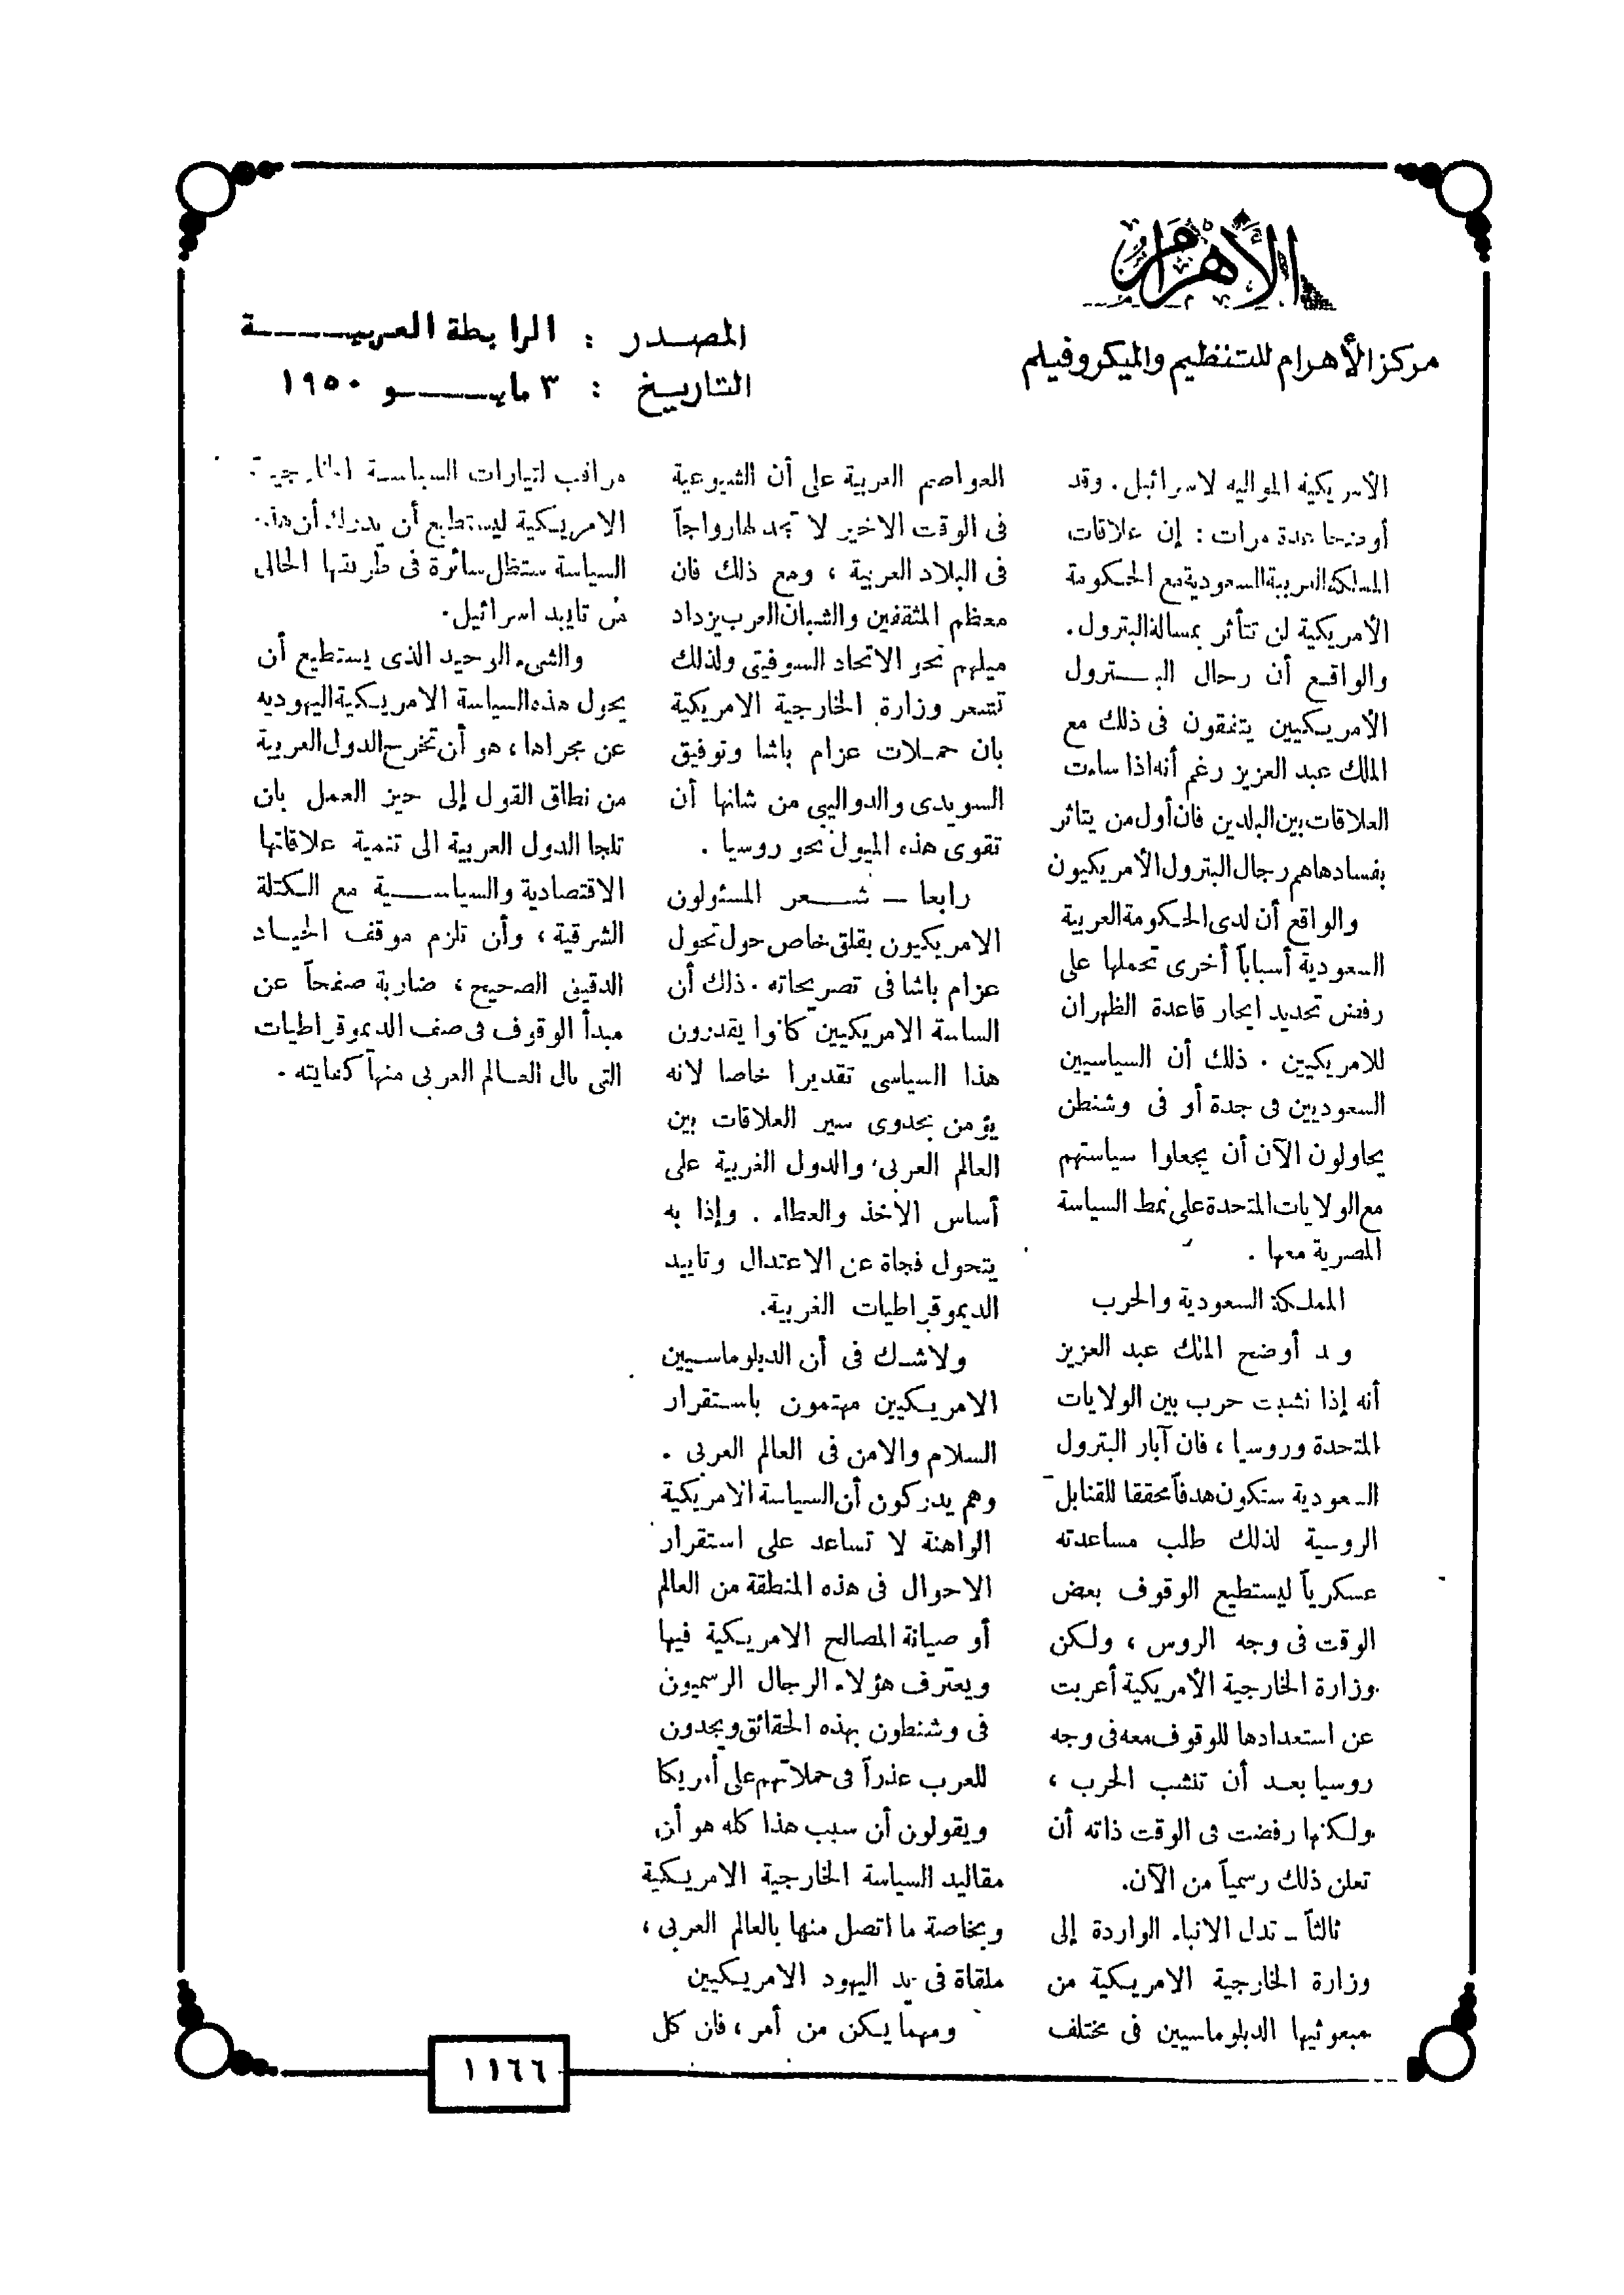 الأهرام
مركز الأهرام للتنظيم والميكروفيلم
المصدر : الرابطة العربية
التاريخ : ٣ مايو ١٩٥٠
الأمريكية الموالية لاسرائيل . وقد
أوضحا عدة مرات : إن علاقات
المملكة العربية السعودية مع الحكومة
الأمريكية لن تتأثر بمسألة البترول .
والواقع أن رجال البترول
الأمريكيين يتفقون فى ذلك مع
الملك عبد العزيز رغم أنه اذا ساءت
العلاقات بين البلدين فان أول من يتأثر
بفسادها هم رجال البترول الأمريكيون
والواقع أن لدى الحكومة العربية
السعودية أسباباً أخرى تحملها على
رفض تجديد ايجار قاعدة الظهران
للامريكيين . ذلك أن السياسيين
السعوديين فى جدة أو فى وشنطن
يحاولون الآن أن يجعلوا سياستهم
مع الولايات المتحدة على نمط السياسة
المصرية معها .
المملكة السعودية والحرب
أوضح الملك عبد العزيز
أنه إذا نشبت حرب بين الولايات
المتحدة وروسيا ، فان آبار البترول
السعودية ستكون هدفاً محققا للقنابل
الروسية لذلك طلب مساعدته
عسكرياً ليستطيع الوقوف بعض
الوقت فى وجه الروس ، ولكن
وزارة الخارجية الأمريكية أعربت
عن استعدادها للوقوف معه فى وجه
روسيا بعد أن تنشب الحرب ،
ولكنها رفضت فى الوقت ذاته أن
تعلن ذلك رسمياً من الآن .
ثالثاً — تدل الانباء الواردة إلى
وزارة الخارجية الامريكية من
مبعوثيها الدبلوماسيين فى مختلف
العواصم العربية على أن الشيوعية
فى الوقت الاخير لا تجد لها رواجاً
فى البلاد العربية ، ومع ذلك فان
معظم المثقفين والشبان العرب يزداد
ميلهم نحو الاتحاد السوفيتى ولذلك
تشعر وزارة الخارجية الامريكية
بان حملات عزام باشا وتوفيق
السويدى والدواليبى من شانها أن
تقوى هذه الميول نحو روسيا .
رابعا — شعر المسئولون
الامريكيون بقلق خاص حول تحول
عزام باشا فى تصريحاته . ذلك أن
الساسة الامريكيين كانوا يقدرون
هذا السياسى تقديرا خاصا لانه
يؤمن بجدوى سير العلاقات بين
العالم العربى والدول الغربية على
أساس الاخذ والعطاء . وإذا به
يتحول فجاة عن الاعتدال وتاييد
الديموقراطيات الغربية .
ولا شك فى أن الدبلوماسيين
الامريكيين مهتمون باستقرار
السلام والامن فى العالم العربى .
وهم يدركون أن السياسة الامريكية
الراهنة لا تساعد على استقرار
الاحوال فى هذه المنطقة من العالم
أو صيانة المصالح الامريكية فيها
ويعترف هؤلاء الرجال الرسميون
فى وشنطون بهذه الحقائق ويجدون
للعرب عذراً فى حملاتهم على أمريكا
ويقولون أن سبب هذا كله هو أن
مقاليد السياسة الخارجية الامريكية
وبخاصة ما اتصل منها بالعالم العربى ،
ملقاة فى يد اليهود الامريكيين
ومهما يكن من أمر ، فان كل
مراقب لتيارات السياسة الخارجية
الامريكية ليستطيع أن يدرك أن هذه
السياسة ستظل سائرة فى طريقها الحالى
من تاييد اسرائيل .
والشىء الوحيد الذى يستطيع أن
يحول هذه السياسة الامريكية اليهودية
عن مجراها ، هو أن تخرج الدول العربية
من نطاق القول إلى حيز العمل بان
تلجا الدول العربية الى تنمية علاقاتها
الاقتصادية والسياسية مع الكتلة
الشرقية ، وأن تلزم موقف الحياد
الدقيق الصحيح ، ضاربة صفحاً عن
مبدأ الوقوف فى صف الديموقراطيات
التى نال العالم العربى منها كفايته .
١١٦٦